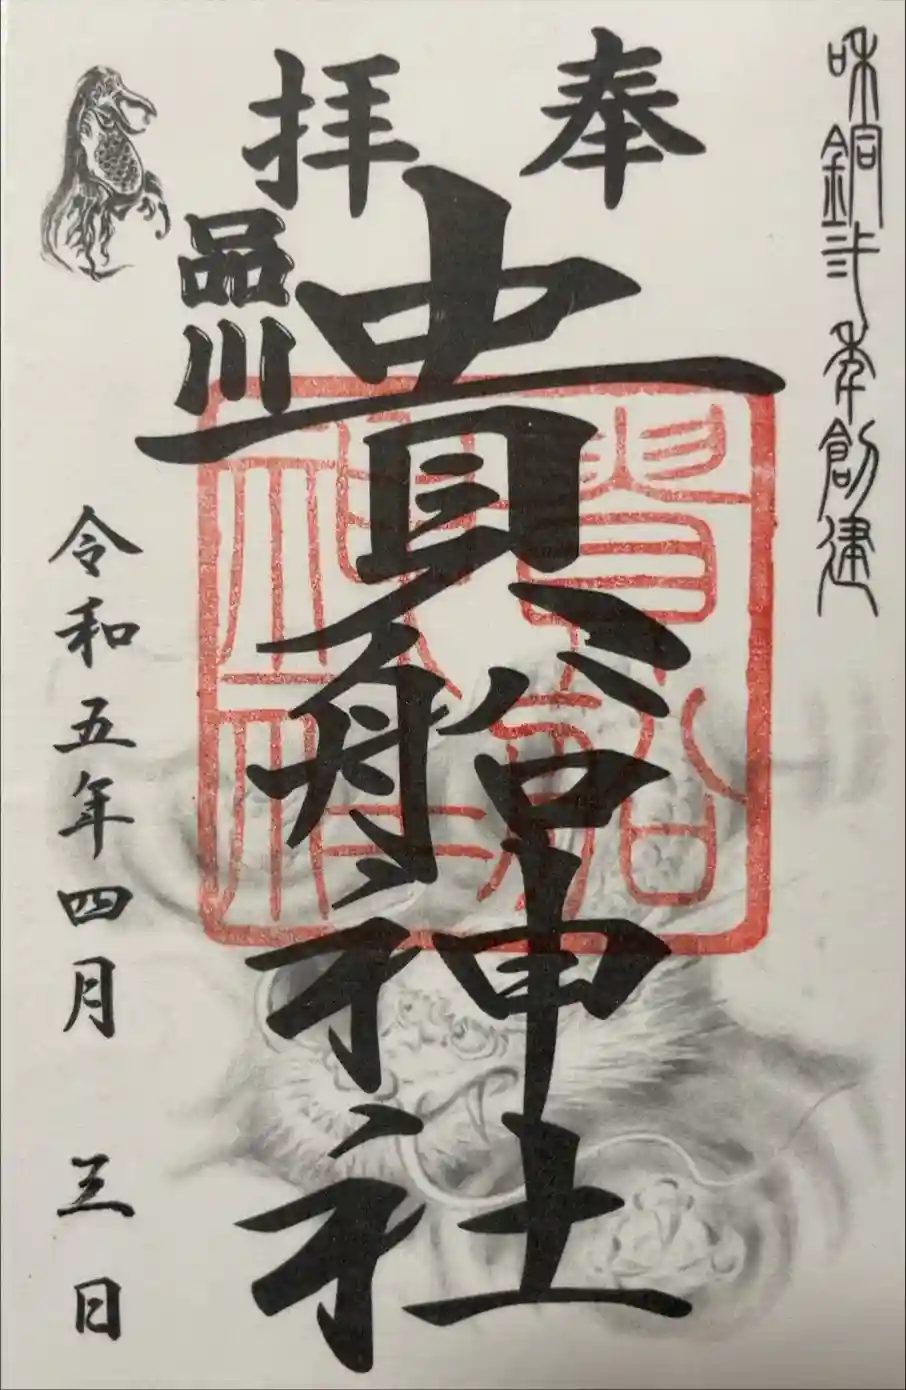 和銅弐年創建
奉拝
品川
貴船神社
貴船神社
令和五年四月三日